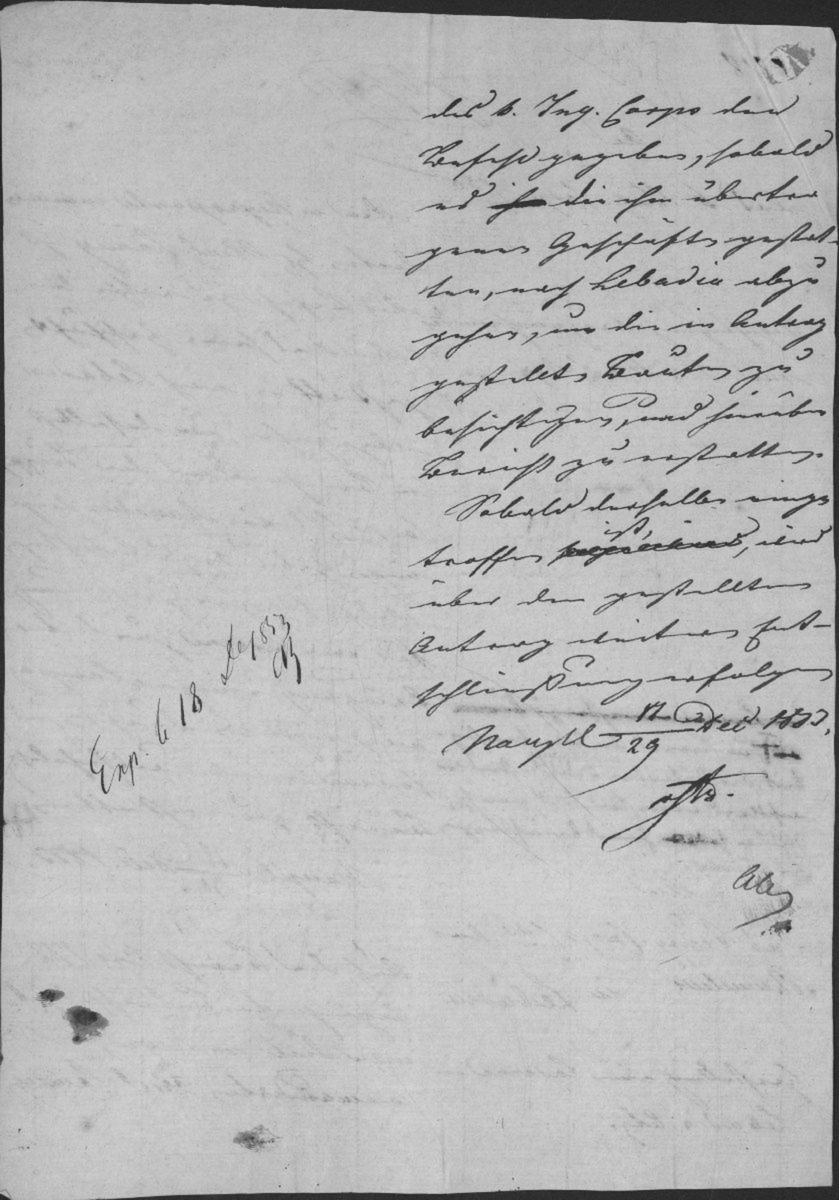 des k. Ing. Corps den
Befehl gegeben, sobald
es die ihm übertra
genen Geschäfte gestat-
ten, nach Lebadia abzu
gehen, um die in Antrag
gestellte Bauten zu
besichtigen, und hierüber
Bericht zu erstatten.
Sobald derselbe einge
troffen ist, wird
über den gestellten
Antrag weitere Ent-
schließung erfolgen
Nauplia 17/29 Dec 1833.
Exp. d 18 Dez 1833